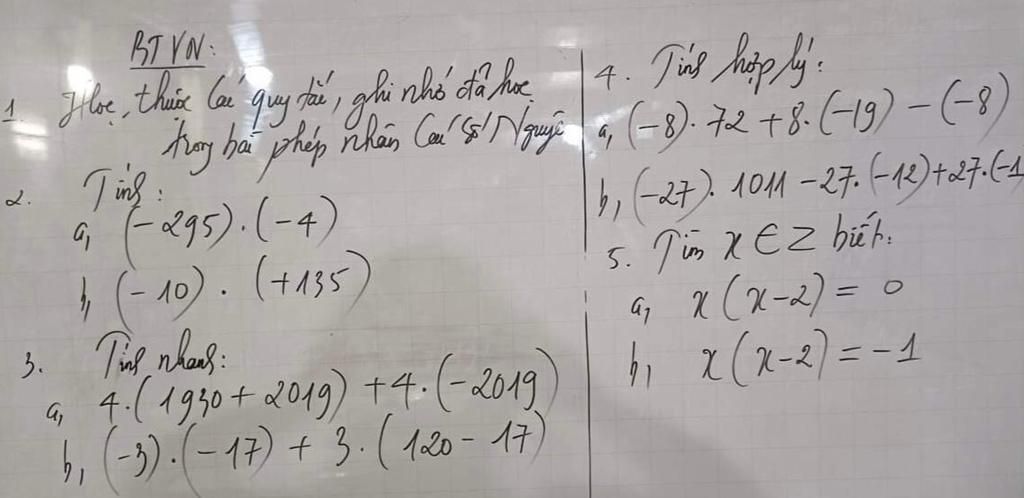 BTVN:
1. Học, thuộc các quy tắc, ghi nhớ đã học
trong bài phép nhân các số Nguyê
2. Tính:
a, (-295).(-4)
b, (-10). (+135)
3. Tính nhanh:
a, 4.(1930+2019) +4.(-2019)
b, (-3).(-17) + 3.(120-17)
4. Tính hợp lý:
a, (-8). 72 +8.(-19) - (-8)
b, (-27). 1011 -27.(-12)+27.(-1
5. Tìm x ∈ Z biết:
a, x(x-2) = 0
b, x(x-2) = -1